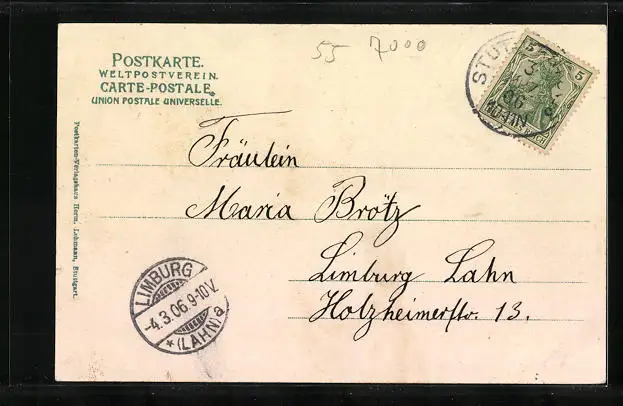 55 7000
POSTKARTE.
WELTPOSTVEREIN.
CARTE-POSTALE.
UNION POSTALE UNIVERSELLE.
5 5
Fräulein
Maria Brötz
Limburg Lahn
Holzheimerstr. 13.
LIMBURG
-4.3.06.9-10V.
* (LAHN) a
Postkarten-Verlagshaus Herm. Lohmann, Stuttgart.